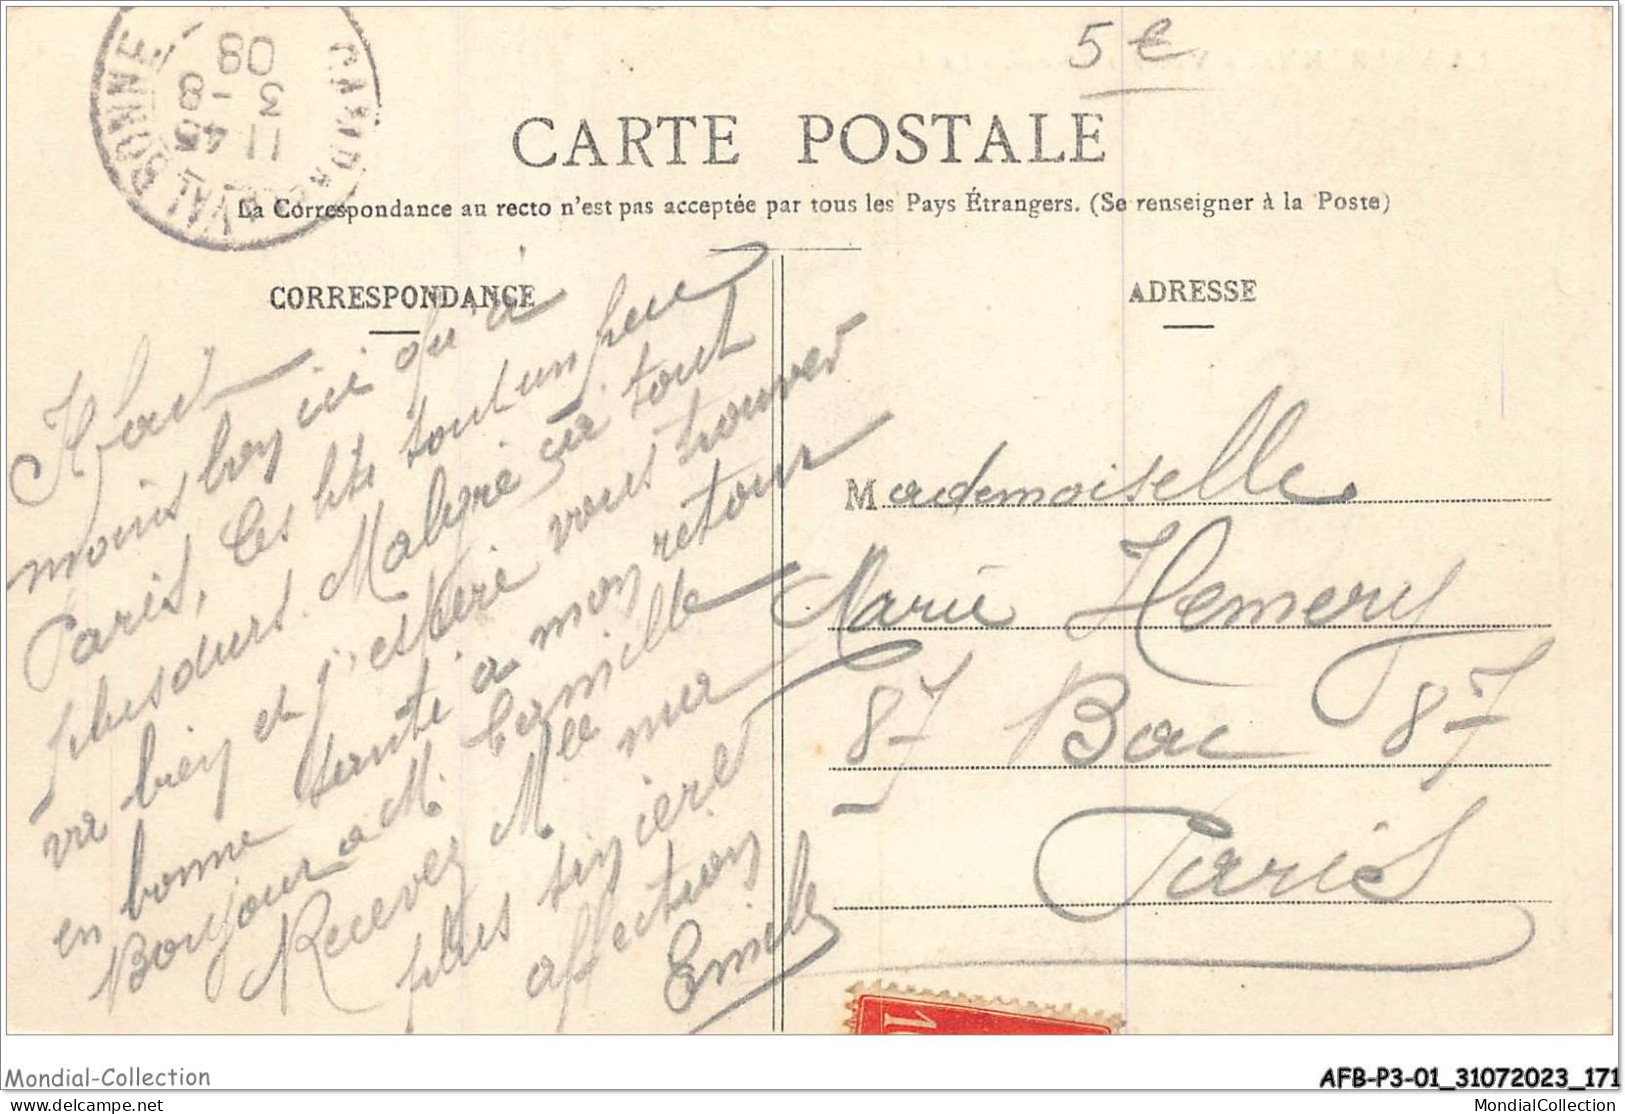 5 €
CARTE POSTALE
La Correspondance au recto n'est pas acceptée par tous les Pays Étrangers. (Se renseigner à la Poste)
CORRESPONDANCE
ADRESSE
Il fait
moins bon ici qu'à
Paris, les lits tout un peu
plus durs. Malgré ça tout
va bien et j'espère vous trouver
en bonne santé à mon retour
Bonjour a M. Camille
Recevez Mlle ma
plus sinsière
affection
Emile
Mademoiselle
Marie Hemery
87 Bac 87
Paris
11 45
3 - 8
08
VAL BONNE
Mondial-Collection
AFB-P3-01_31072023_171
www.mondialcollection.com
MondialCollection